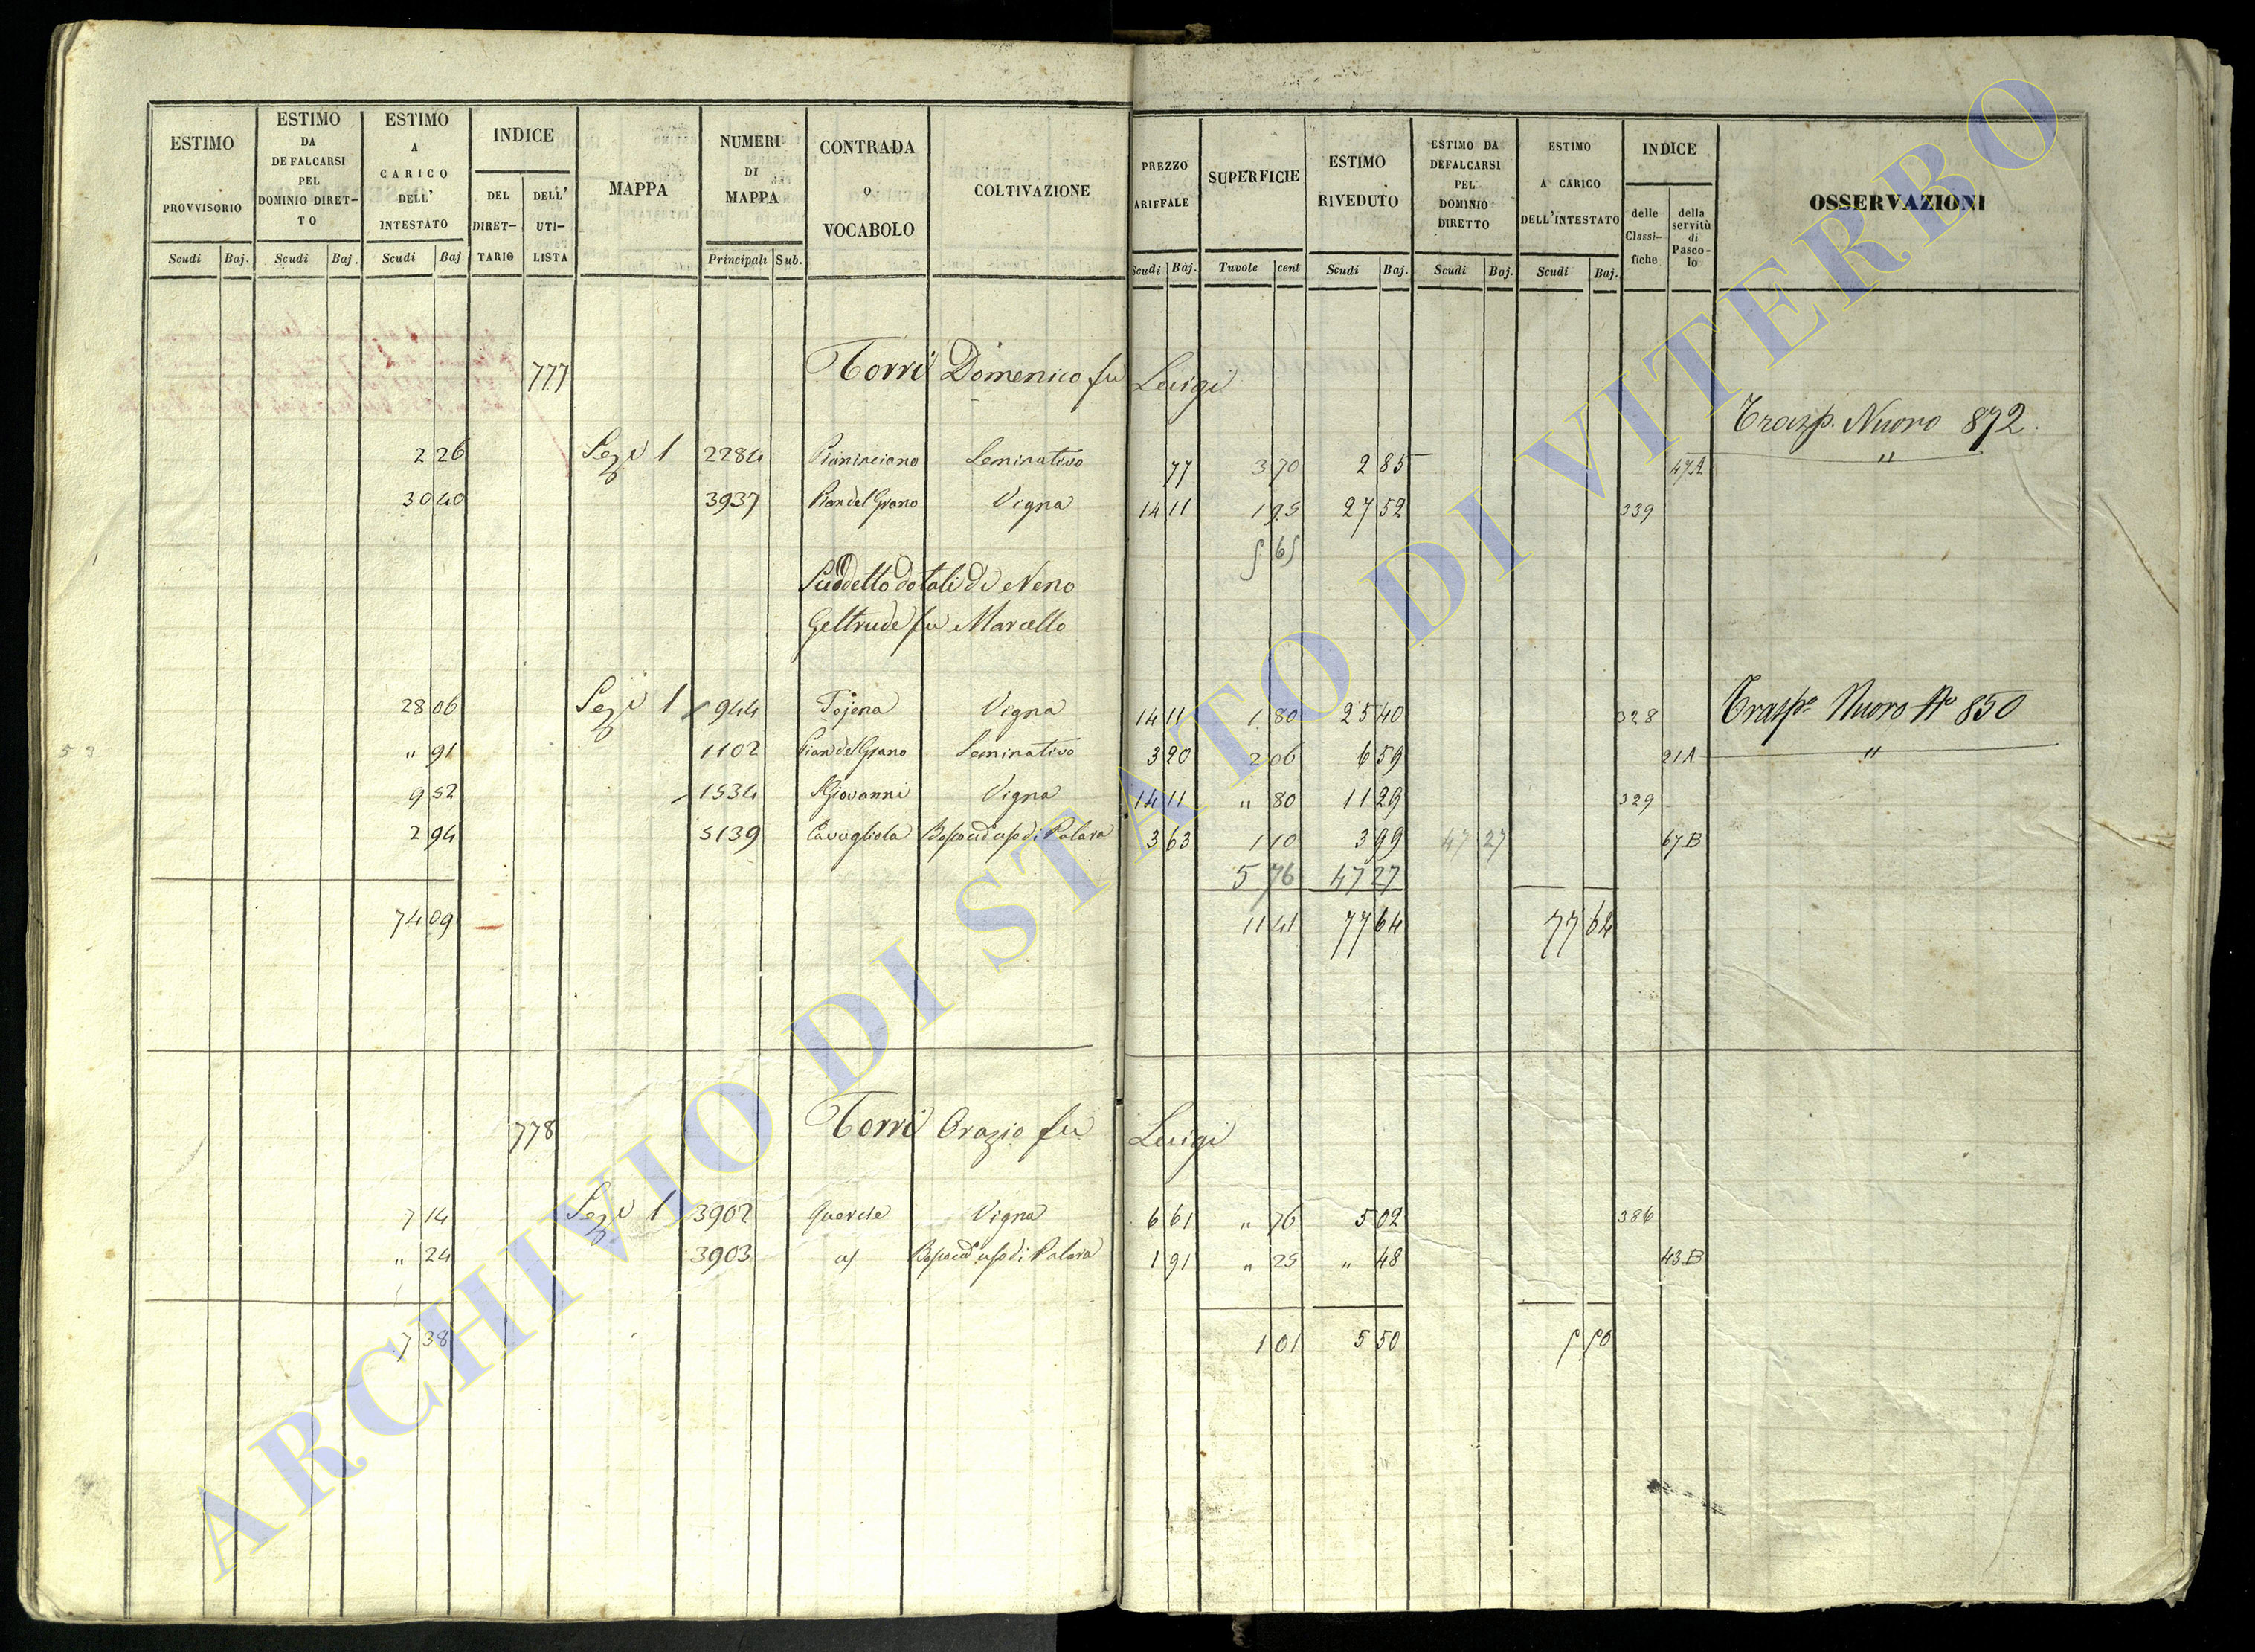 ESTIMO PROVVISORIO Scudi Baj.
ESTIMO DA DEFALCARSI PEL DOMINIO DIRET-TO Scudi Baj.
ESTIMO A CARICO DELL' INTESTATO Scudi Baj.
INDICE DEL DIRET-TARIO DELL' UTI-LISTA
MAPPA
NUMERI DI MAPPA Principali Sub.
CONTRADA o VOCABOLO
COLTIVAZIONE
PREZZO ARIFFALE Scudi Baj.
SUPERFICIE Tuvole cent
ESTIMO RIVEDUTO Scudi Baj.
ESTIMO DA DEFALCARSI PEL DOMINIO DIRETTO Scudi Baj.
ESTIMO A CARICO DELL'INTESTATO Scudi Baj.
INDICE delle Classi-fiche della servitù di Pasco-lo
OSSERVAZIONI
777 Torri Domenico fu Luigi
Trasp. Nuovo 872.
2 26 Sez. 1 2284 Seminativo 77 3 70 2 85 47A "
30 40 3937 Pian del Grano Vigna 14 11 1 95 27 52 339
5 65
Suddetto dotali di Neno
Geltrude fu Marcello
28 06 Sez. 1 944 Tojena Vigna 14 11 1 80 25 40 328 Trasp. Nuovo No 850
" 91 1102 Pian del Grano Seminativo 3 20 2 06 6 59 21A "
9 52 1534 S Giovanni Vigna 14 11 " 80 11 29 329
2 94 5139 Cavugliola 3 63 1 10 3 99 47 27 67B
5 76 47 27
74 09 11 41 77 64 77 64
778 Torri Orazio fu Luigi
7 14 Sez. 1 3902 Quercie Vigna 6 61 " 76 5 02 386
" 24 3903 1 91 " 25 " 48 43B
7 38 1 01 5 50 5 50
53
ARCHIVIO DI STATO DI VITERBO